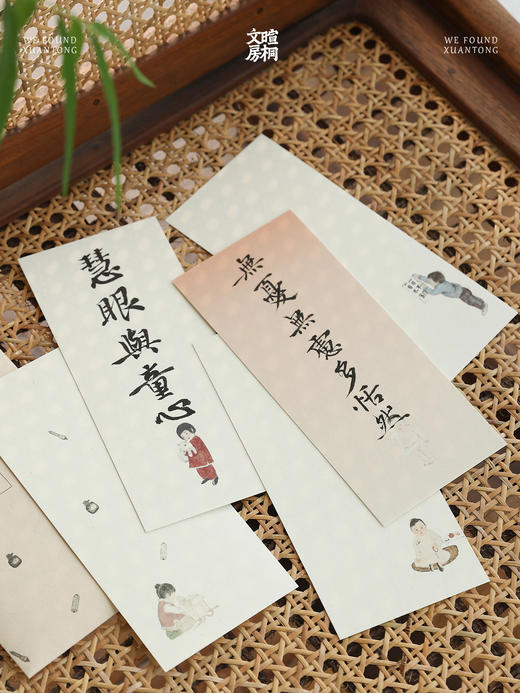 WE FOUND
XUANTONG
暄桐
文房
WE FOUND
XUANTONG
慧眼與童心
無憂無慮多恬然